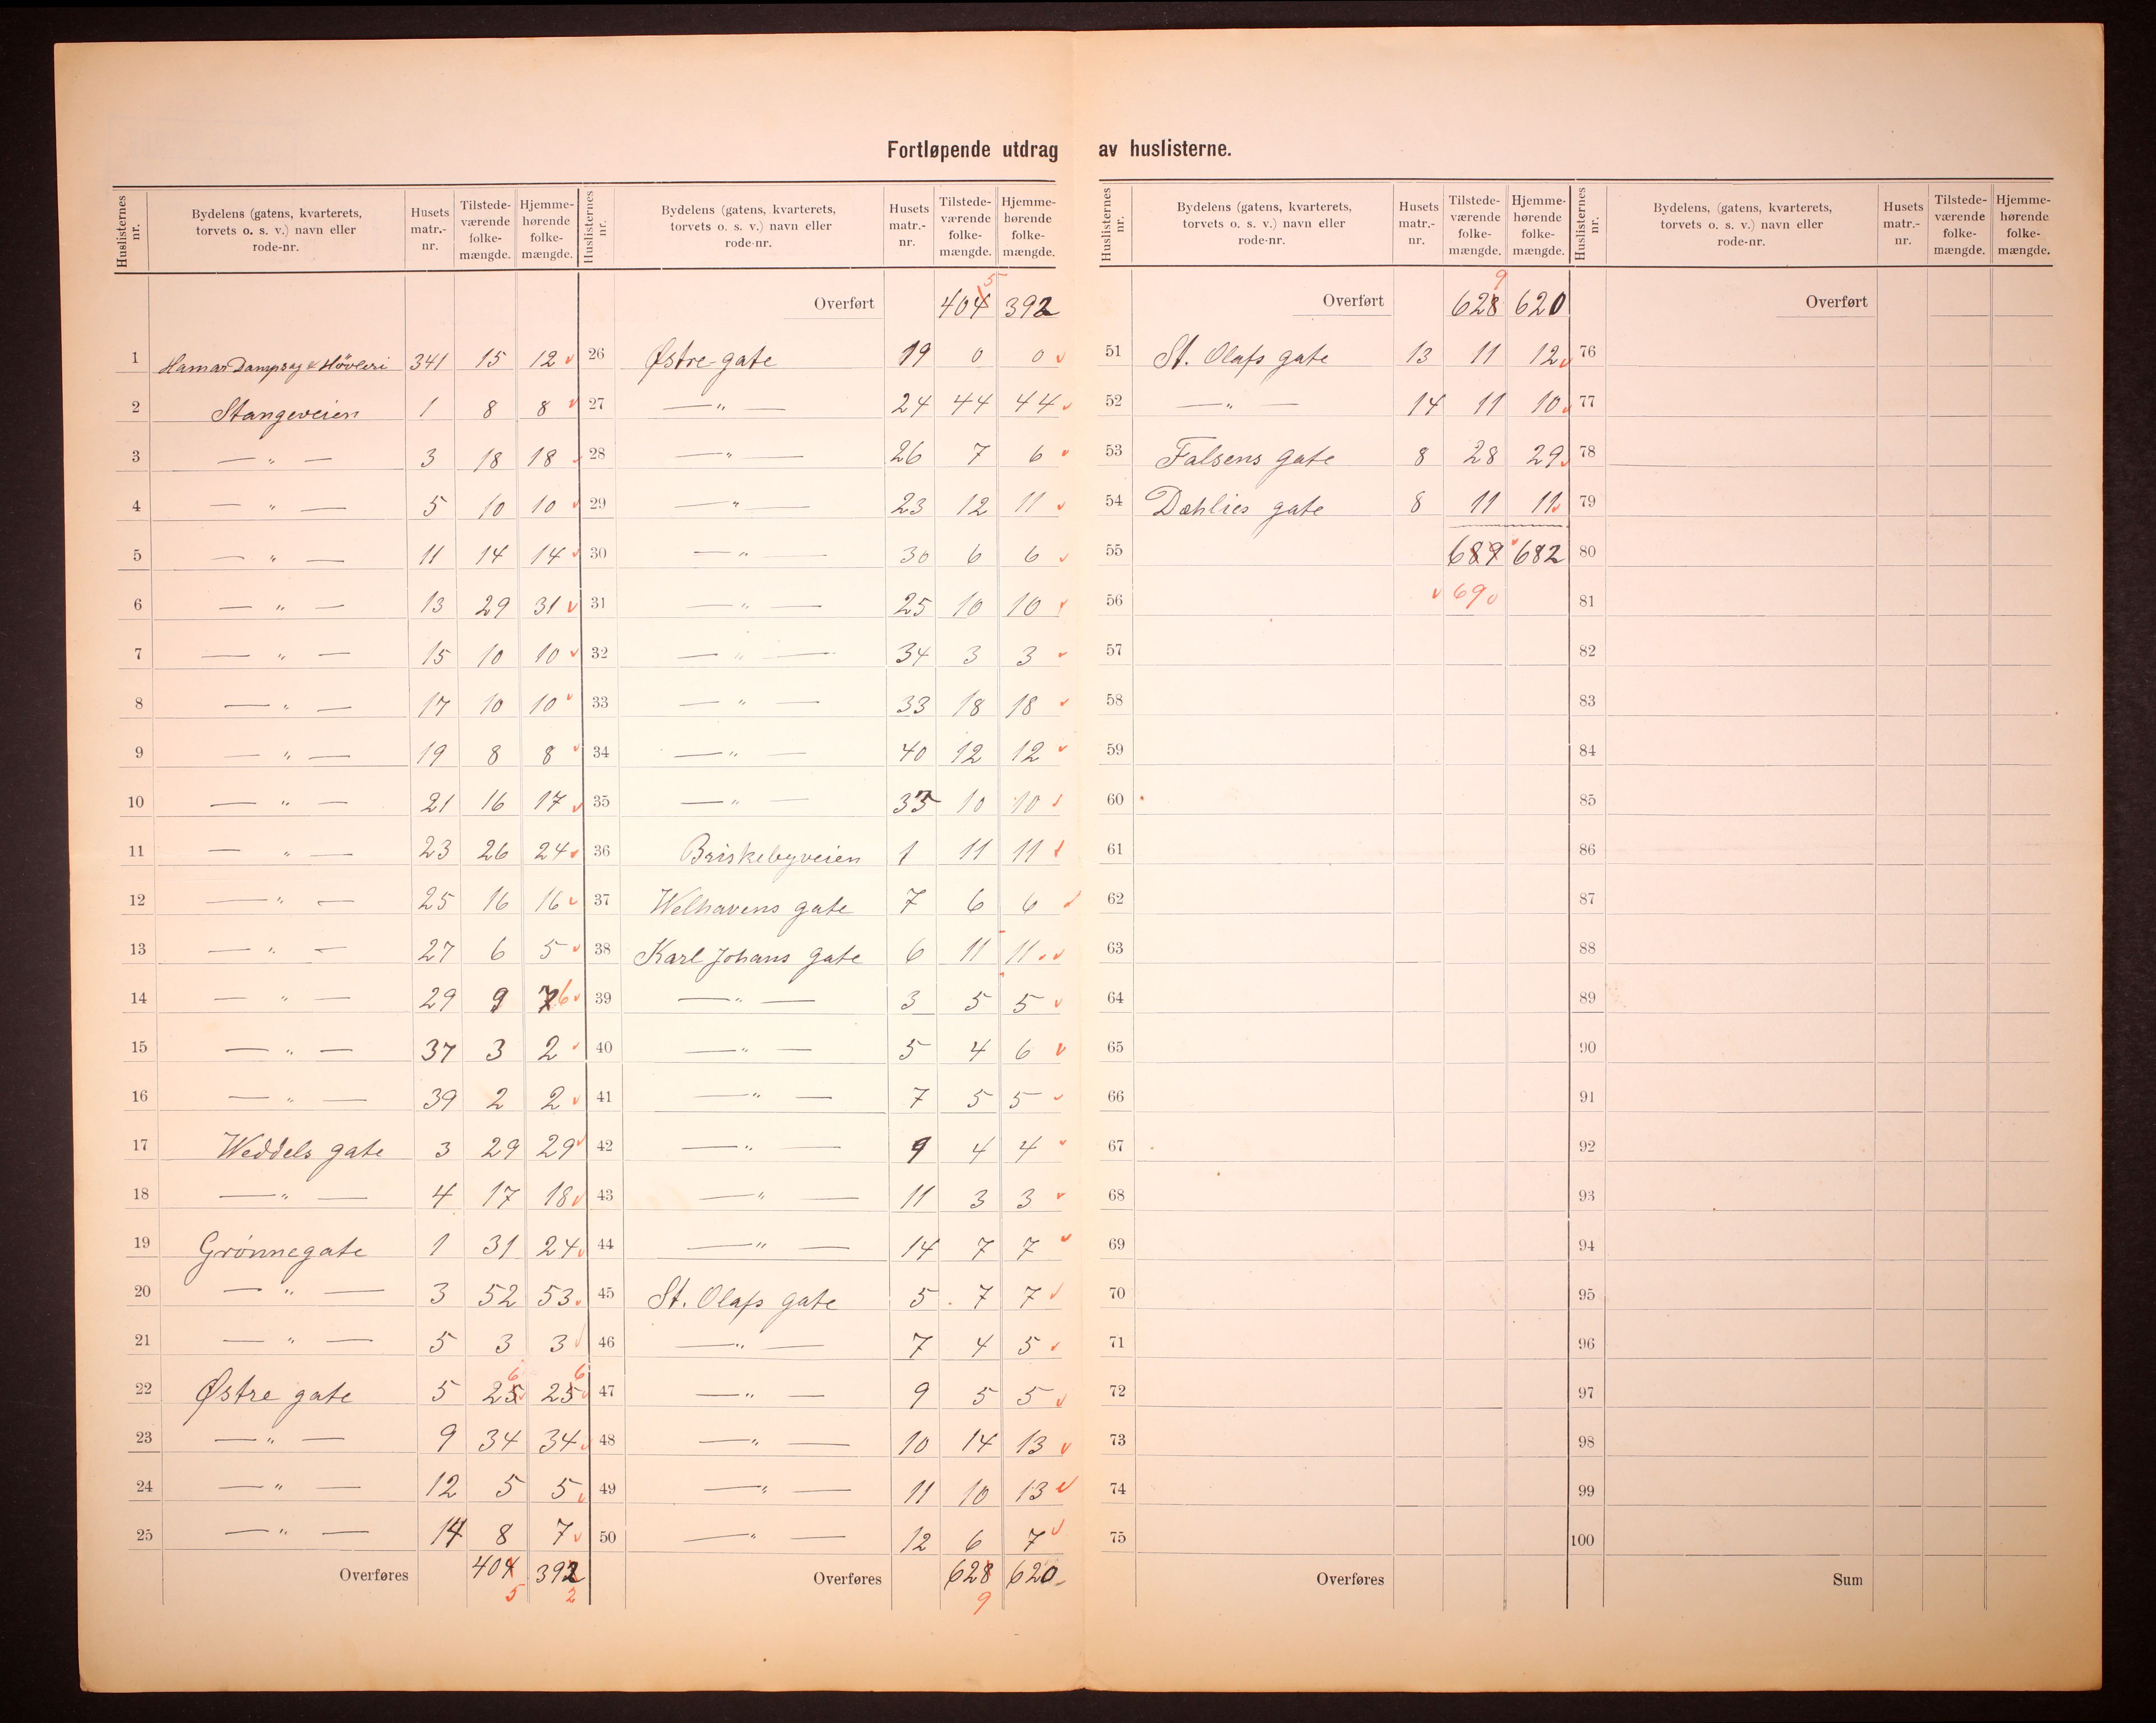 Fortløpende utdrag av huslisterne.
Huslisternes nr. | Bydelens (gatens, kvarterets, torvets o. s. v.) navn eller rode-nr. | Husets matr.-nr. | Tilstedeværende folkemængde. | Hjemmehørende folkemængde.
1 Hamar Dampsag & Høvleri 341 15 12
2 Stangeveien 1 8 8
3 — " — 3 18 18
4 — " — 5 10 10
5 — " — 11 14 14
6 — " — 13 29 31
7 — " — 15 10 10
8 — " — 17 10 10
9 — " — 19 8 8
10 — " — 21 16 17
11 — " — 23 26 24
12 — " — 25 16 16
13 — " — 27 6 5
14 — " — 29 9 7 6
15 — " — 37 3 2
16 — " — 39 2 2
17 Weddels gate 3 29 29
18 — " — 4 17 18
19 Grønnegate 1 31 24
20 — " — 3 52 53
21 — " — 5 3 3
22 Østre gate 5 25 6 25 6
23 — " — 9 34 34
24 — " — 12 5 5
25 — " — 14 8 7
Overføres 404 5 392 2
Huslisternes nr. | Bydelens (gatens, kvarterets, torvets o. s. v.) navn eller rode-nr. | Husets matr.-nr. | Tilstedeværende folkemængde. | Hjemmehørende folkemængde.
Overført 404 5 392
26 Østre-gate 19 0 0
27 — " — 24 44 44
28 — " — 26 7 6
29 — " — 23 12 11
30 — " — 30 6 6
31 — " — 25 10 10
32 — " — 34 3 3
33 — " — 33 18 18
34 — " — 40 12 12
35 — " — 35 10 10
36 Briskebyveien 1 11 11
37 Welhavens gate 7 6 6
38 Karl Johans gate 6 11 11
39 — " — 3 5 5
40 — " — 5 4 6
41 — " — 7 5 5
42 — " — 9 4 4
43 — " — 11 3 3
44 — " — 14 7 7
45 St. Olafs gate 5 7 7
46 — " — 7 4 5
47 — " — 9 5 5
48 — " — 10 14 13
49 — " — 11 10 13
50 — " — 12 6 7
Overføres 628 9 620
Huslisternes nr. | Bydelens (gatens, kvarterets, torvets o. s. v.) navn eller rode-nr. | Husets matr.-nr. | Tilstedeværende folkemængde. | Hjemmehørende folkemængde.
Overført 628 9 620
51 St. Olafs gate 13 11 12
52 — " — 14 11 10
53 Falsens gate 8 28 29
54 Dæhlies gate 8 11 11
55 689 682
56 690
57
58
59
60
61
62
63
64
65
66
67
68
69
70
71
72
73
74
75
Overføres
Huslisternes nr. | Bydelens, (gatens, kvarterets, torvets o. s. v.) navn eller rode-nr. | Husets matr.-nr. | Tilstedeværende folkemængde. | Hjemmehørende folkemængde.
Overført
76
77
78
79
80
81
82
83
84
85
86
87
88
89
90
91
92
93
94
95
96
97
98
99
100
Sum